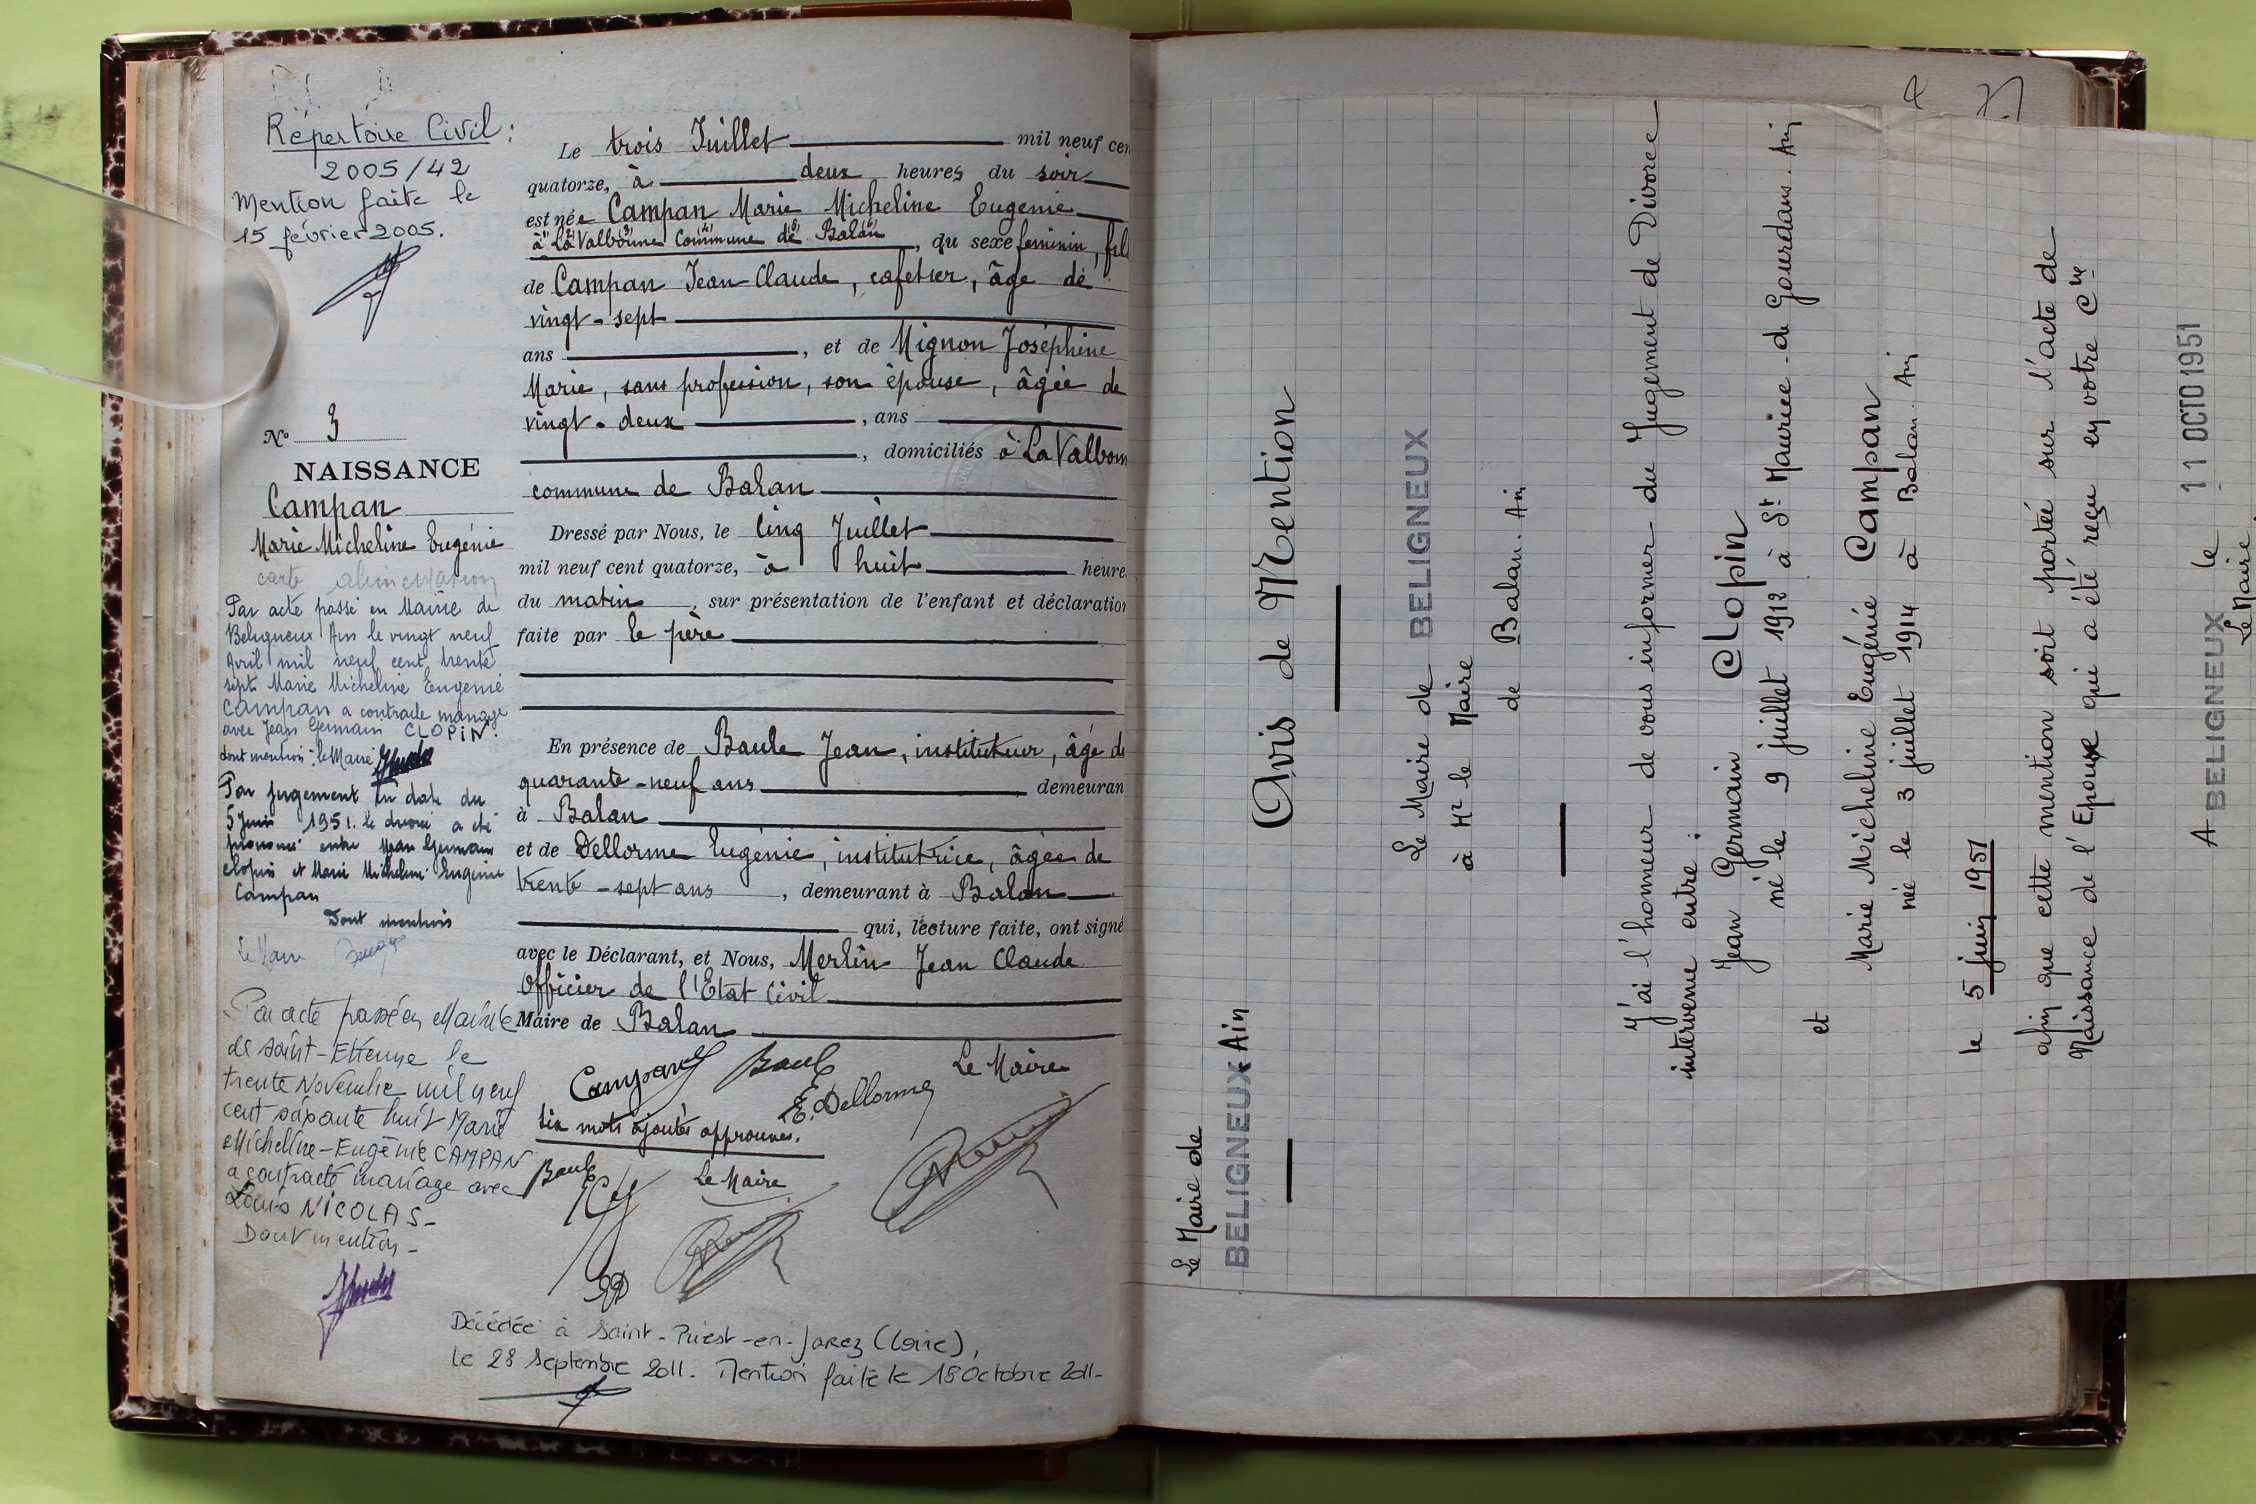 Répertoire Civil :
2005/42
Mention faite le
15 février 2005.
N° 3
NAISSANCE
Campan
Marie Micheline Eugénie
carte alimentation
Par acte passé en Mairie de
Beligneux Ain le vingt neuf
Avril mil neuf cent trente
sept Marie Micheline Eugenie
Campan a contracté mariage
avec Jean Germain CLOPIN.
dont mention : le Maire
Par jugement en date du
5 Juin 1951. le divorce a été
prononcé entre Jean Germain
Clopin et Marie Micheline Eugénie
Campan
Dont mention
Le Maire
Par acte passé en Mairie
de Saint-Etienne le
trente Novembre mil neuf
cent soixante huit Marie
Micheline-Eugénie CAMPAN
a contracté mariage avec
Louis NICOLAS-
Dont mention-
Le trois Juillet mil neuf cen
quatorze, à deux heures du soir
est née Campan Marie Micheline Eugenie
à La Valbonne Commune de Balan, du sexe feminin, fil
de Campan Jean Claude, cafetier, âgé de
vingt-sept
ans , et de Mignon Joséphine
Marie, sans profession, son épouse, âgée de
vingt-deux , ans
, domiciliés à La Valbonn
commune de Balan
Dressé par Nous, le Cinq Juillet
mil neuf cent quatorze, à huit heure
du matin , sur présentation de l'enfant et déclaration
faite par le père
En présence de Baule Jean, instituteur, âgé de
quarante-neuf ans demeuran
à Balan
et de Dellorme Eugénie, institutrice, âgée de
trente-sept ans , demeurant à Balan
qui, lecture faite, ont signé
avec le Déclarant, et Nous, Merlin Jean Claude
Officier de l'Etat Civil
Maire de Balan
Campan Baule Le Maire
E. Dellorme
Six mots ajoutés approuvés.
Baule Le Maire
Décédée à Saint-Priest-en-Jarez (Loire),
le 28 Septembre 2011. Mention faite le 18 Octobre 2011-
Le Maire de
BELIGNEUX Ain
Avis de Mention
Le Maire de BELIGNEUX
à Mr le Maire
de Balan. Ain
J'ai l'honneur de vous informer du Jugement de Divorce
intervenue entre :
Jean Germain Clopin
né le 9 juillet 1912 à St Maurice-de Gourdans. Ain
et
Marie Micheline Eugénie Campan
née le 3 juillet 1914 à Balan. Ain
le 5 juin 1951
afin que cette mention soit portée sur l'acte de
Naissance de l'Epouse qui a été reçu en votre Cne-
A BELIGNEUX le 11 OCTO 1951
Le Maire.